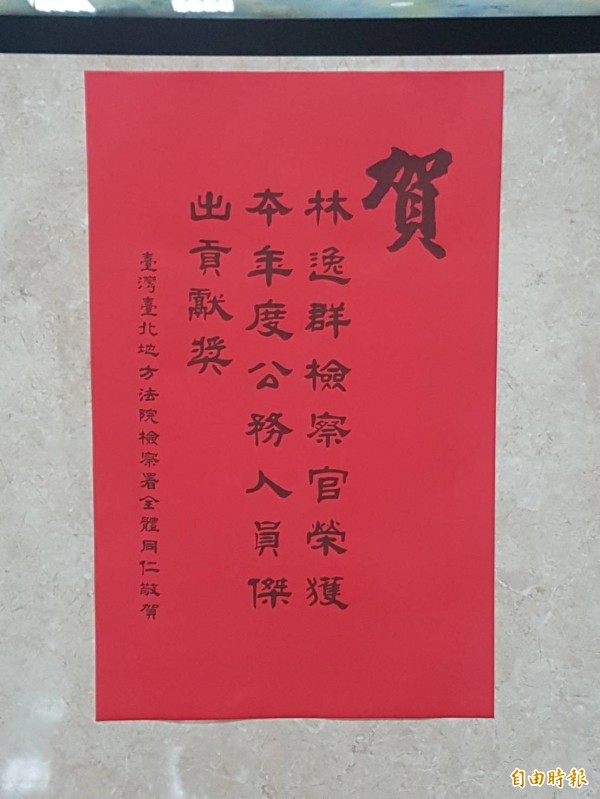 賀
林逸群檢察官榮獲
本年度公務人員傑
出貢獻獎
臺灣臺北地方法院檢察署全體同仁敬賀
自由時報